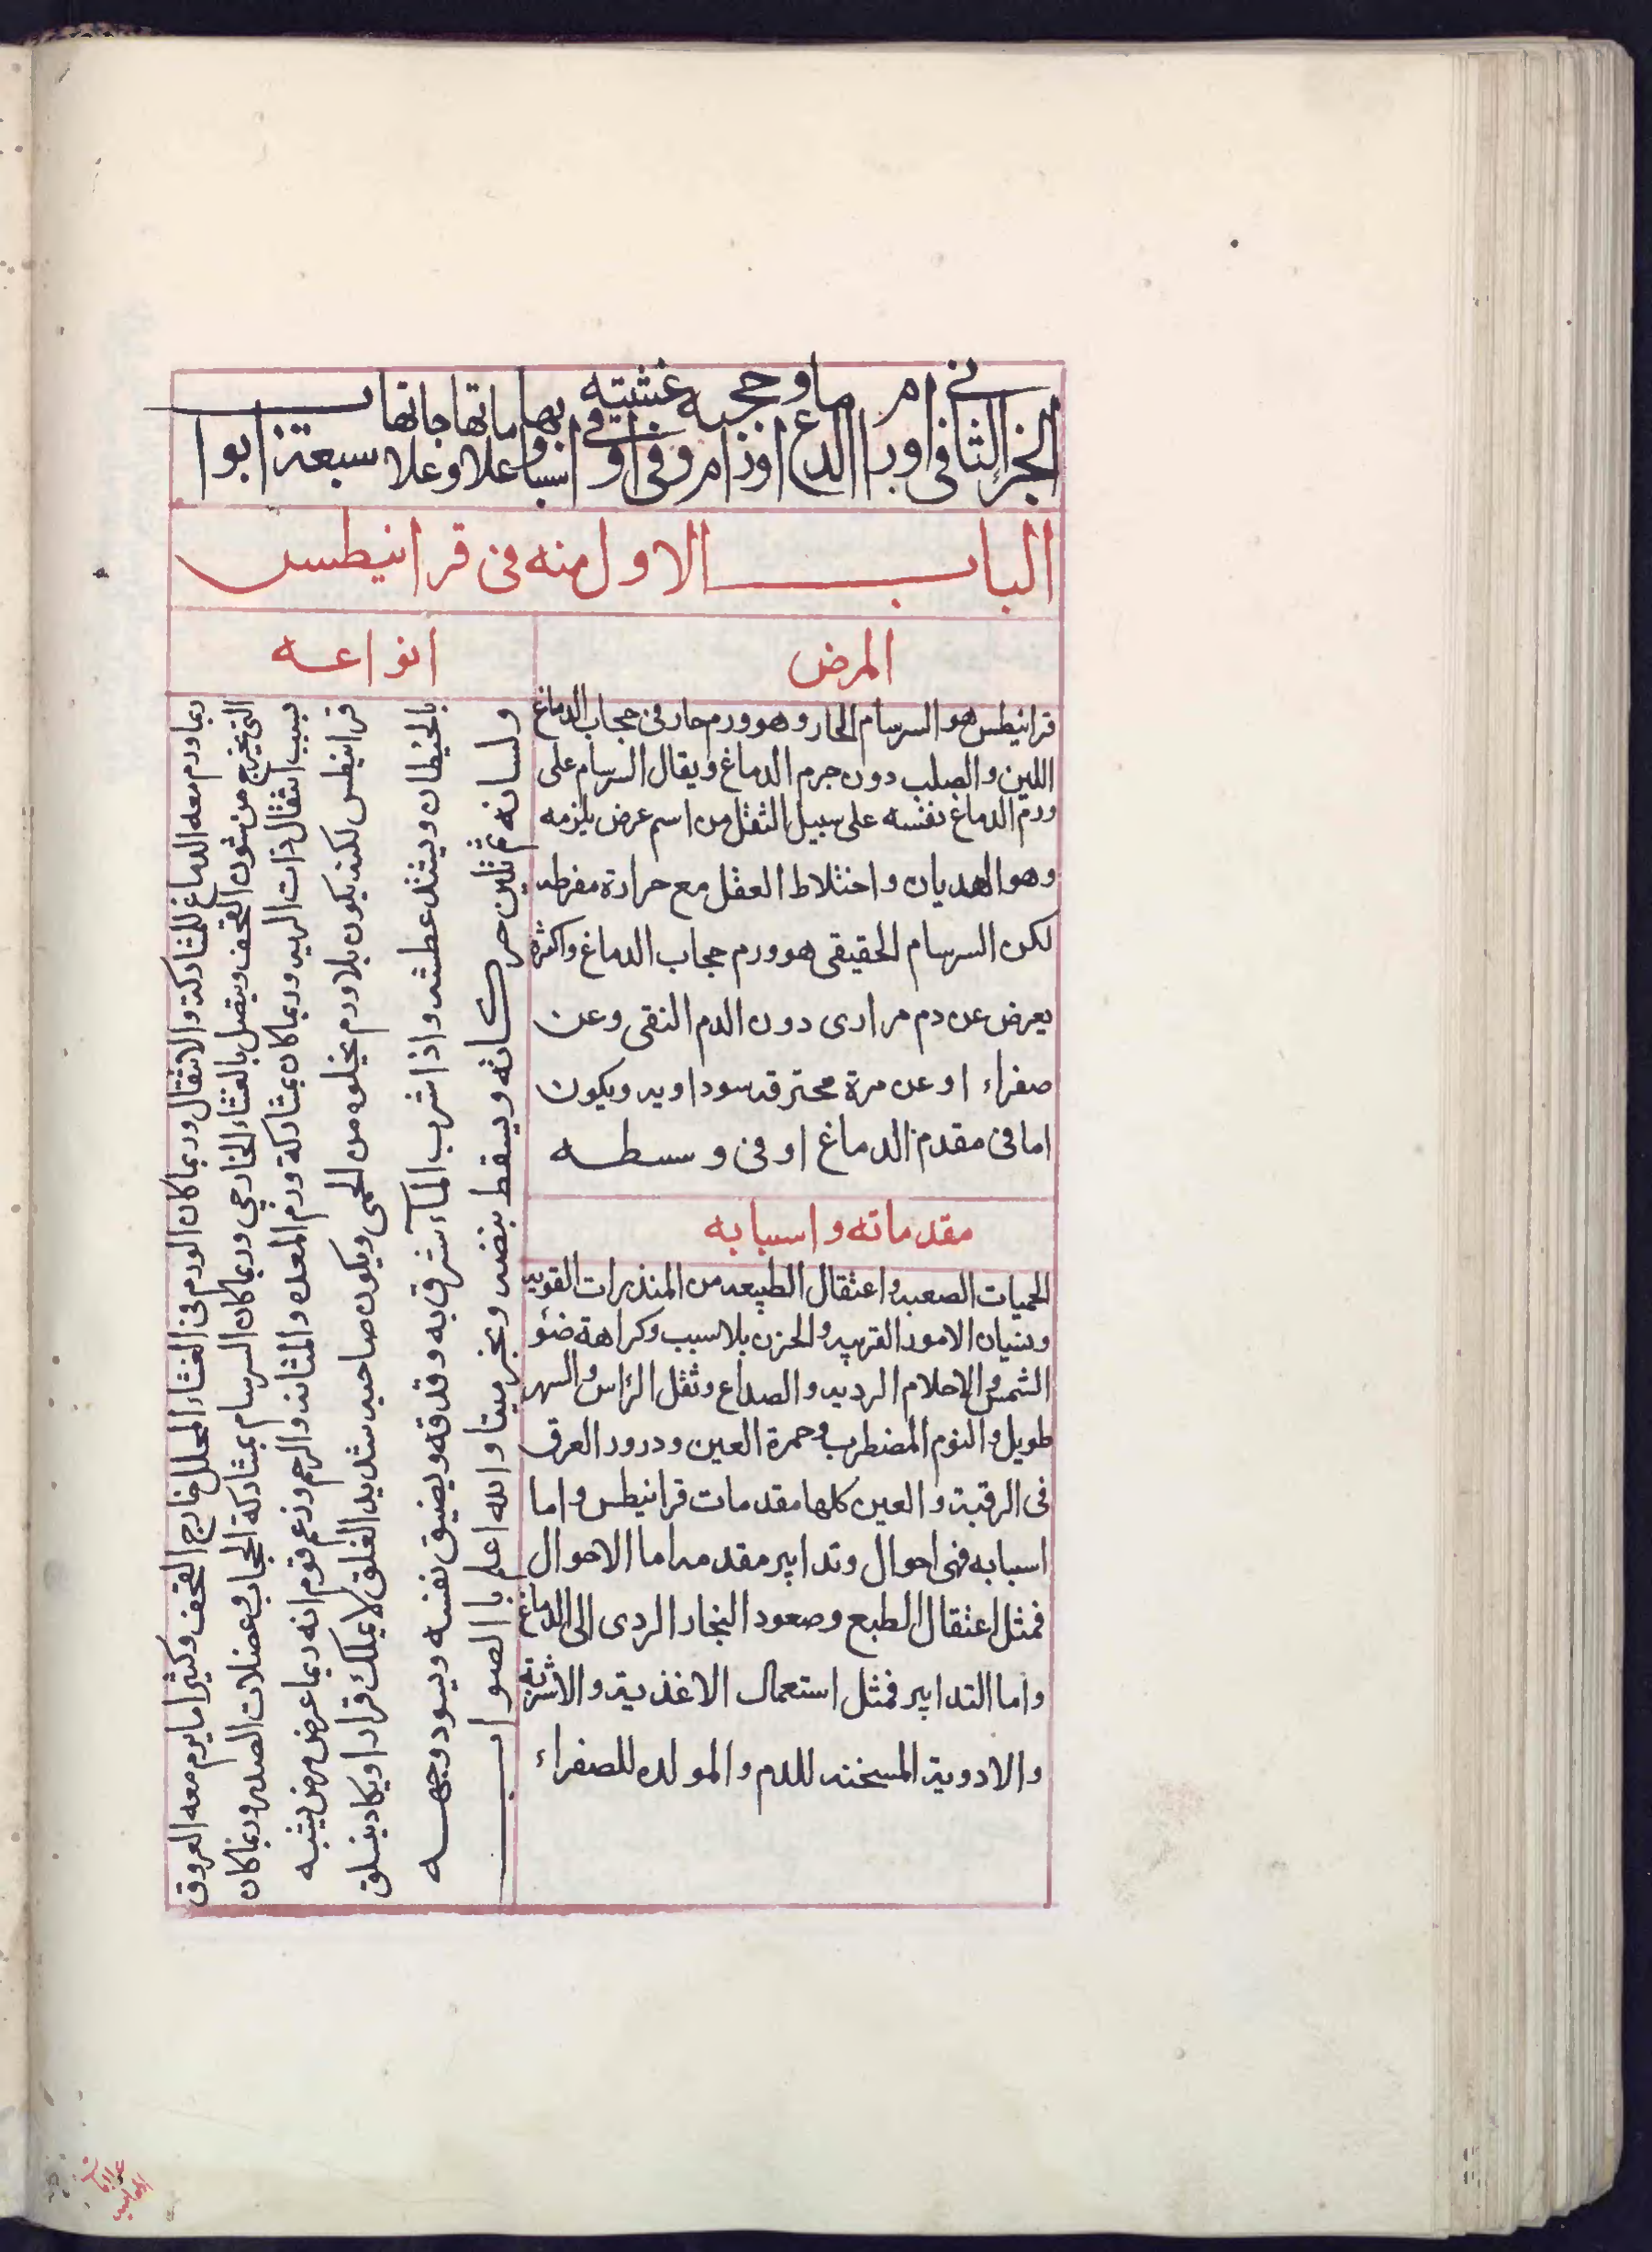 الجزء الثاني في اورام الدماغ وحجبه واورام اغشيته وفي اسبابها وعلاماتها وعلاجاتها سبعة ابواب
الباب الاول منه في قرانيطس
المرض
قرانيطس هو السرسام الحار وهو ورم حار في حجاب الدماغ
اللين والصلب دون جرم الدماغ ويقال السرسام على
ورم الدماغ نفسه على سبيل النقل من اسم عرض يلزمه
وهو الهديان واختلاط العقل مع حرارة مفرطه
لكن السرسام الحقيقي هو ورم حجاب الدماغ واكثره
يعرض عن دم مراري دون الدم النقى وعن
صفراء او عن مرة محترقه سوداويه ويكون
اما في مقدم الدماغ او في وسطه
مقدماته واسبابه
الحميات الصعبه واعتقال الطبيعه من المنذرات القويه
ونسيان الامور القريبه والحزن بلا سبب وكراهة ضؤ
الشمس والاحلام الرديه والصداع وثقل الراس والسهر
طويل والنوم المضطرب وحمرة العين ودرور العرق
في الرقبة والعين كلها مقدمات قرانيطس واما
اسبابه فهي احوال وتدابير مقدمه اما الاحوال
فمثل اعتقال الطبع وصعود البخار الردى الى الدماغ
واما التدابير فمثل استعمال الاغذية والاشربة
والادوية المسخنه للدم والمولده للصفراء
انواعه
ربما ورم معه الدماغ للمشاركة والانتقال وربما كان الورم في الغشاء المجلل خارج القحف وكثيرا ما يرم معه العروق
التي تخرج من شون القحف ويتصل بالغشاء الخارجي وربما كان السرسام بمشاركة الحجاب وعضلات الصدر وربما كان
بسبب انتقال ذات الريه وربما كان بمشاركة ورم المعده والمثانه والرحم وزعم قوم انه ربما عرض مرض يشبه
قرانيطس لكنه يكون بلا ورم يخلوه من الحمى ويكون صاحبه شديد القلق لا يملك قرارا ويكاد يتسلق
بالحيطان ويشتد عطشه واذا شرب المآء شرق به وقدفه ويضيق نفسه ويسود وجهه
ولسانه ثم تلين حركاته ويسقط نبضه ويخر ميتا والله اعلم با الصواب